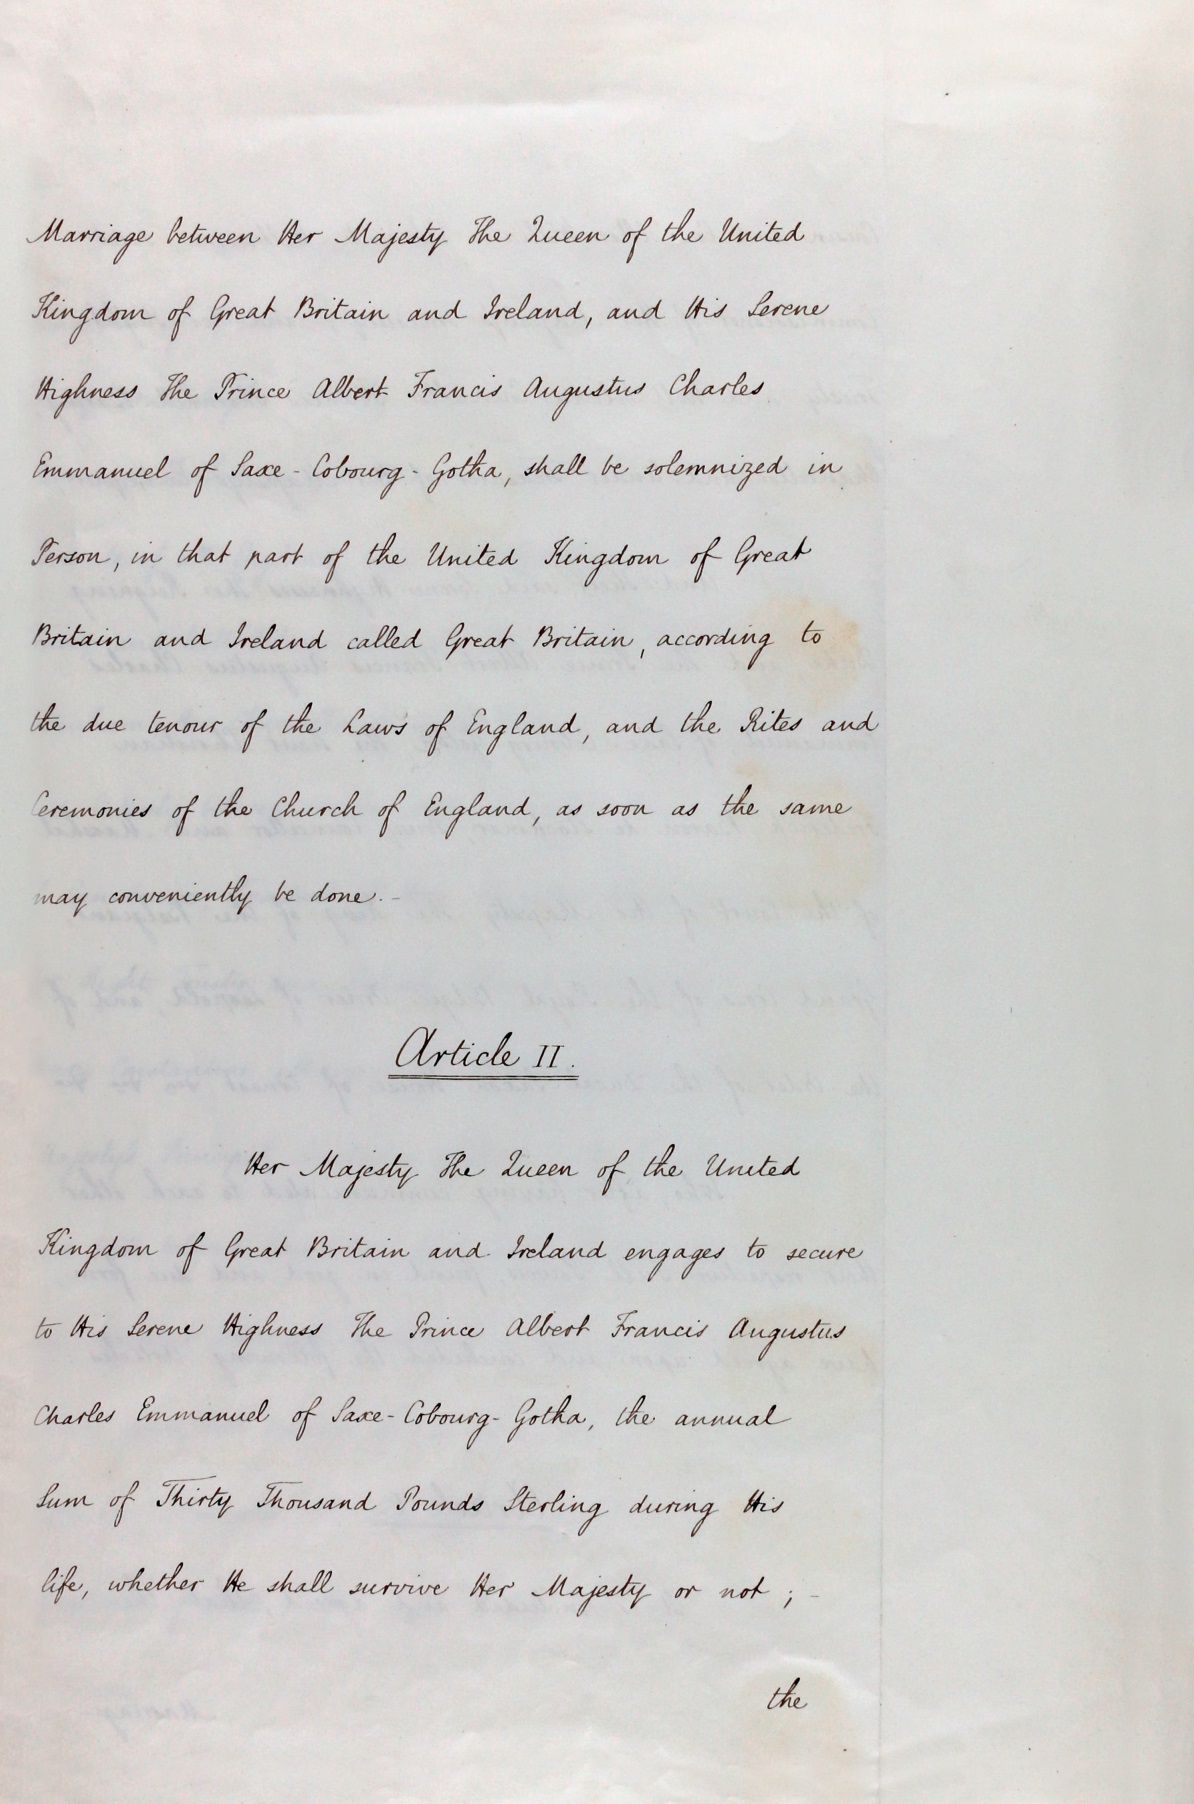 Marriage between Her Majesty The Queen of the United
Kingdom of Great Britain and Ireland, and His Serene
Highness The Prince Albert Francis Augustus Charles
Emmanuel of Saxe-Cobourg-Gotha, shall be solemnized in
Person, in that part of the United Kingdom of Great
Britain and Ireland called Great Britain, according to
the due tenour of the Laws of England, and the Rites and
Ceremonies of the Church of England, as soon as the same
may conveniently be done.-
Article II.
Her Majesty The Queen of the United
Kingdom of Great Britain and Ireland engages to secure
to His Serene Highness The Prince Albert Francis Augustus
Charles Emmanuel of Saxe-Cobourg-Gotha, the annual
Sum of Thirty Thousand Pounds Sterling during His
life, whether He shall survive Her Majesty or not; -
the